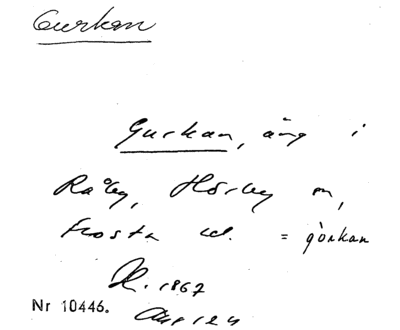 Gurkan
Gurkan, äng i
Råby, Hörby sn,
Frosta hd. = görkan
R. 1867
Nr 10446.
124